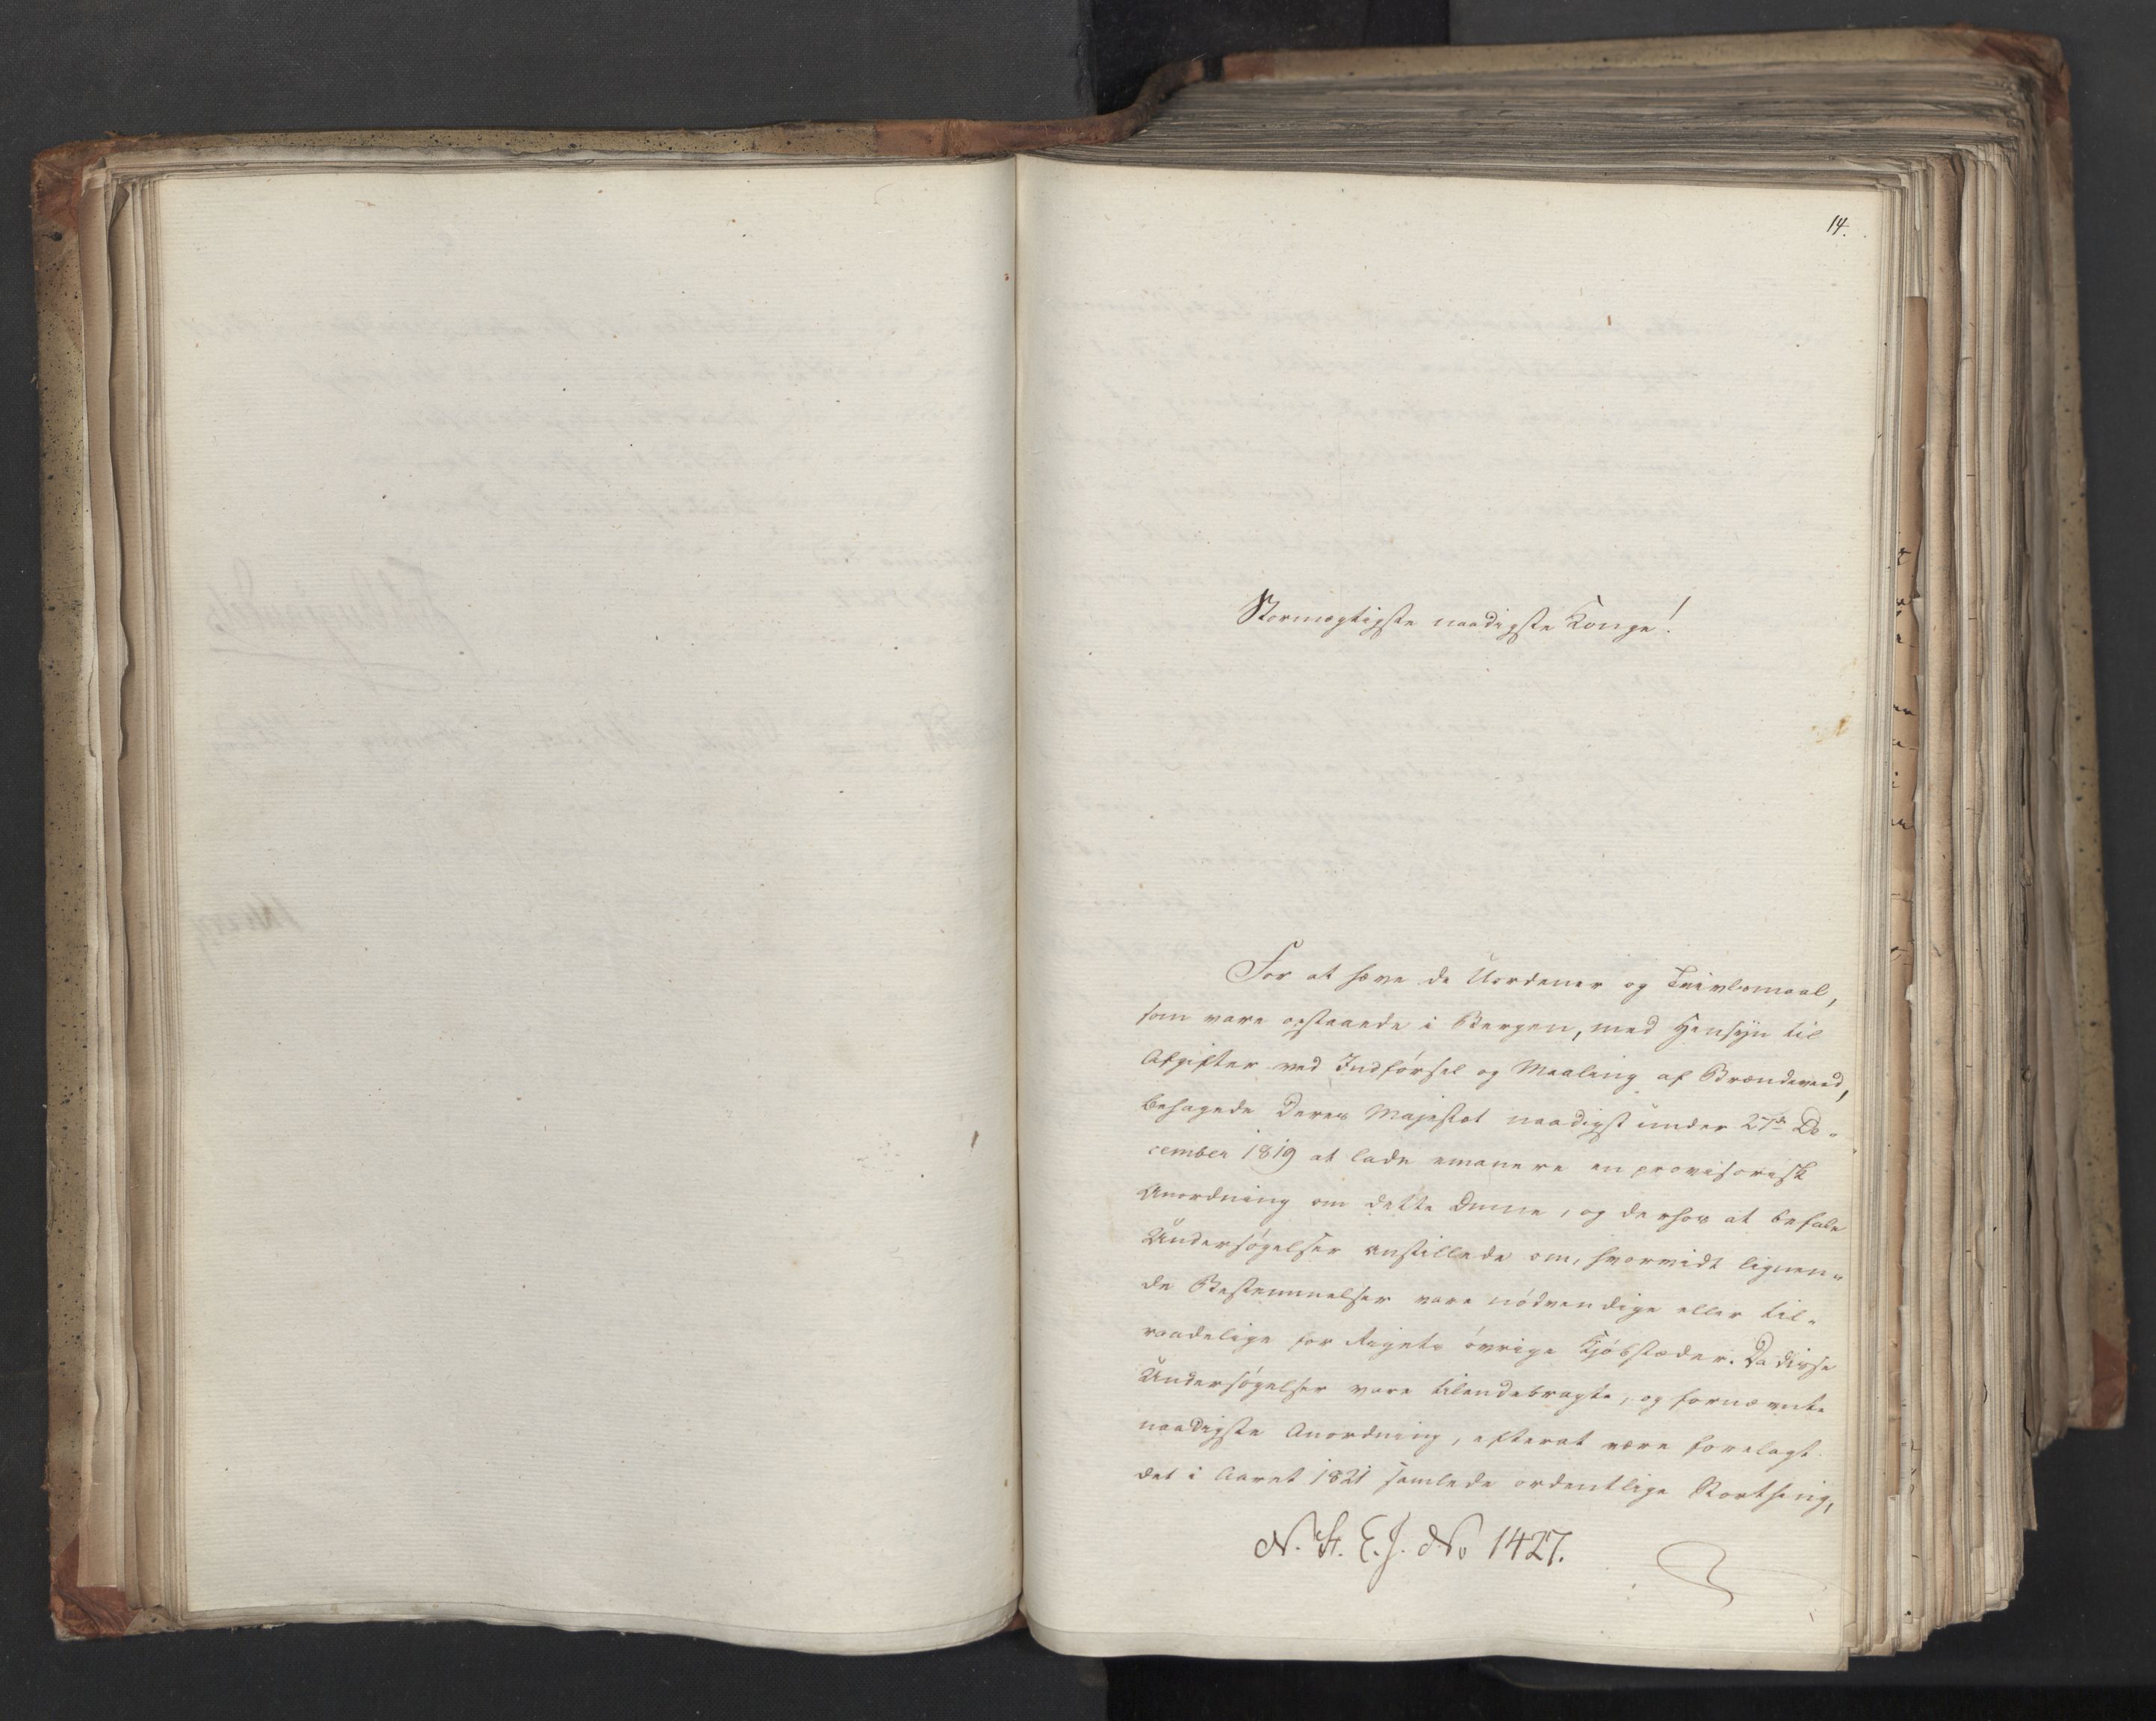 14.
Stormægtigste naadigste Konge!
For at hæve de Uordener og Tvivlsmaal,
som vare opstaaede i Bergen, med Hensyn til
Afgifter ved Indförsel og Maaling af Brændeveed,
behagede Deres Majestæt naadigst under 27de De-
cember 1819 at lade emanere en provisorisk
Anordning om dette Emne, og derhos at befale
Undersögelser anstillede om, hvorvidt lignen-
de Bestemmelser vare nödvendige eller til-
raadelige for Rigets övrige Kjöbstæder. Da disse
Undersögelser vare tilendebragte, og fornævnte
naadigste Anordning, efterat være forelagt
det i Aaret 1821 samlede ordentlige Storthing,
N. St. E. J. No 1427.